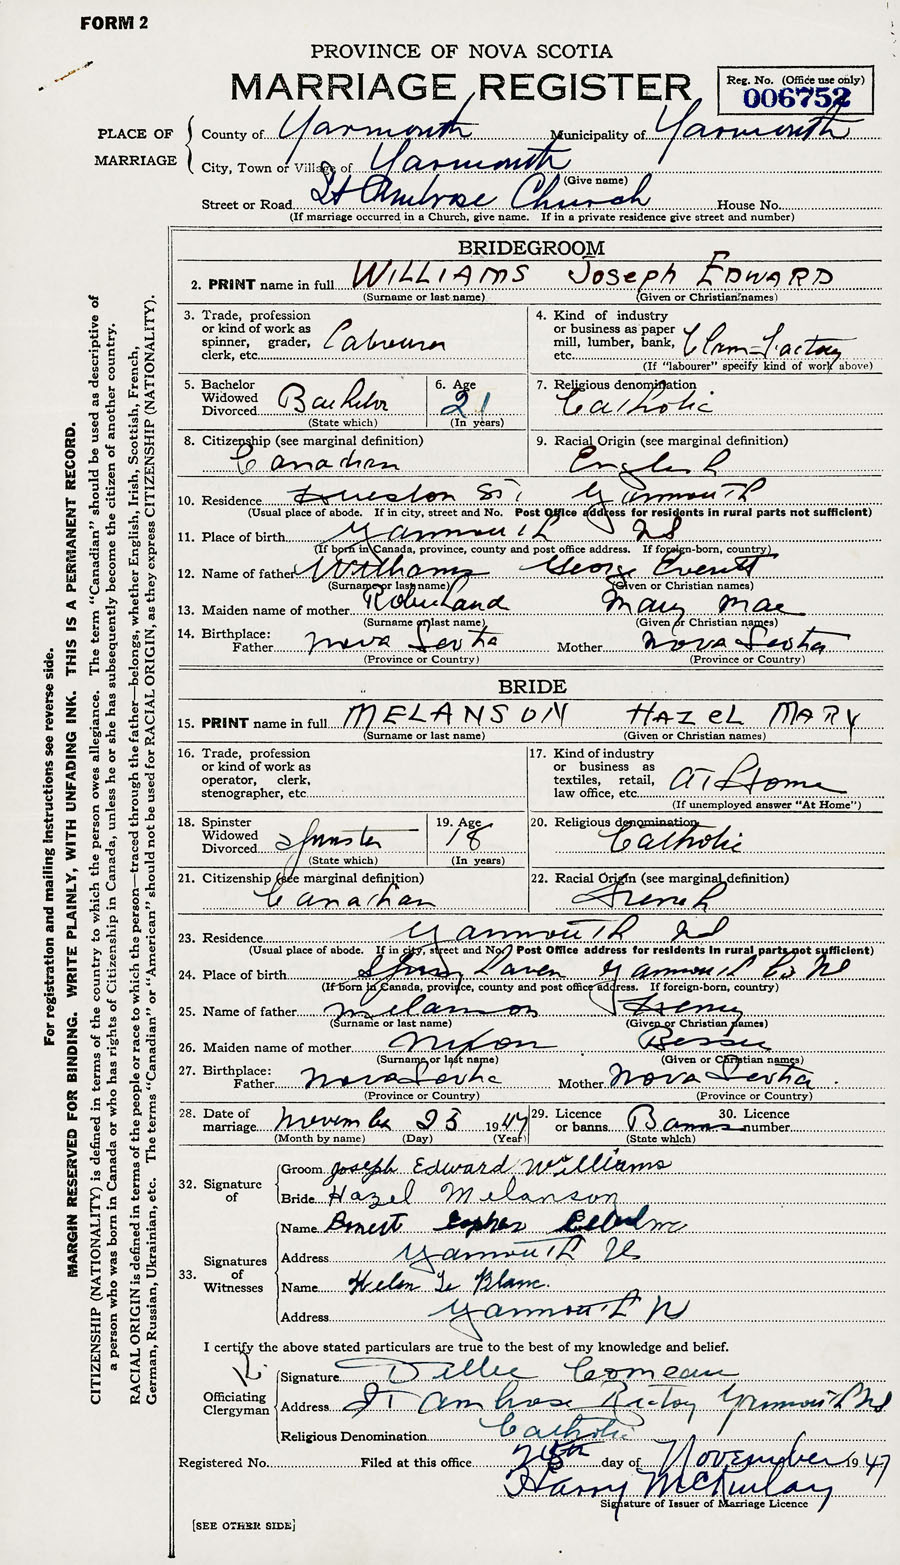 FORM 2
PROVINCE OF NOVA SCOTIA
MARRIAGE REGISTER
Reg. No. (Office use only)
006752
PLACE OF MARRIAGE
County of Yarmouth Municipality of Yarmouth
City, Town or Village of Yarmouth
(Give name)
Street or Road St Ambrose Church House No.
(If marriage occurred in a Church, give name. If in a private residence give street and number)
BRIDEGROOM
2. PRINT name in full WILLIAMS Joseph EDWARD
(Surname or last name) (Given or Christian names)
3. Trade, profession or kind of work as spinner, grader, clerk, etc. Labourer
4. Kind of industry or business as paper mill, lumber, bank, etc. Clam-Factory
(If "labourer" specify kind of work above)
5. Bachelor Widowed Divorced Bachelor
(State which)
6. Age 21
(In years)
7. Religious denomination Catholic
8. Citizenship (see marginal definition) Canadian
9. Racial Origin (see marginal definition) English
10. Residence St. Yarmouth
(Usual place of abode. If in city, street and No. Post Office address for residents in rural parts not sufficient)
11. Place of birth Yarmouth NS
(If born in Canada, province, county and post office address. If foreign-born, country)
12. Name of father Williams George Everett
(Surname or last name) (Given or Christian names)
13. Maiden name of mother Mary Mae
(Surname or last name) (Given or Christian names)
14. Birthplace: Father Nova Scotia Mother Nova Scotia
(Province or Country) (Province or Country)
BRIDE
15. PRINT name in full MELANSON HAZEL MARY
(Surname or last name) (Given or Christian names)
16. Trade, profession or kind of work as operator, clerk, stenographer, etc.
17. Kind of industry or business as textiles, retail, law office, etc. At Home
(If unemployed answer "At Home")
18. Spinster Widowed Divorced Spinster
(State which)
19. Age 18
(In years)
20. Religious denomination Catholic
21. Citizenship (see marginal definition) Canadian
22. Racial Origin (see marginal definition) French
23. Residence Yarmouth NS
(Usual place of abode. If in city, street and No. Post Office address for residents in rural parts not sufficient)
24. Place of birth Yarmouth Co NS
(If born in Canada, province, county and post office address. If foreign-born, country)
25. Name of father Melanson Henry
(Surname or last name) (Given or Christian names)
26. Maiden name of mother Nixon Bessie
(Surname or last name) (Given or Christian names)
27. Birthplace: Father Nova Scotia Mother Nova Scotia
(Province or Country) (Province or Country)
28. Date of marriage November 23 1947
(Month by name) (Day) (Year)
29. Licence or banns Banns
(State which)
30. Licence number
32. Signature of
Groom Joseph Edward Williams
Bride Hazel Melanson
33. Signatures of Witnesses
Name Ernest
Address Yarmouth NS
Name Helen Le Blanc.
Address Yarmouth N
I certify the above stated particulars are true to the best of my knowledge and belief.
Officiating Clergyman
Signature Comeau
Address St Ambrose Rectory Yarmouth NS
Religious Denomination Catholic
Registered No. Filed at this office day of November 1947
Harry McKinlay
Signature of Issuer of Marriage Licence
[SEE OTHER SIDE]
For registration and mailing instructions see reverse side.
MARGIN RESERVED FOR BINDING. WRITE PLAINLY, WITH UNFADING INK. THIS IS A PERMANENT RECORD.
CITIZENSHIP (NATIONALITY) is defined in terms of the country to which the person owes allegiance. The term "Canadian" should be used as descriptive of
a person who was born in Canada or who has rights of Citizenship in Canada, unless he or she has subsequently become the citizen of another country.
RACIAL ORIGIN is defined in terms of the people or race to which the person—traced through the father—belongs, whether English, Irish, Scottish, French,
German, Russian, Ukrainian, etc. The terms "Canadian" or "American" should not be used for RACIAL ORIGIN, as they express CITIZENSHIP (NATIONALITY).